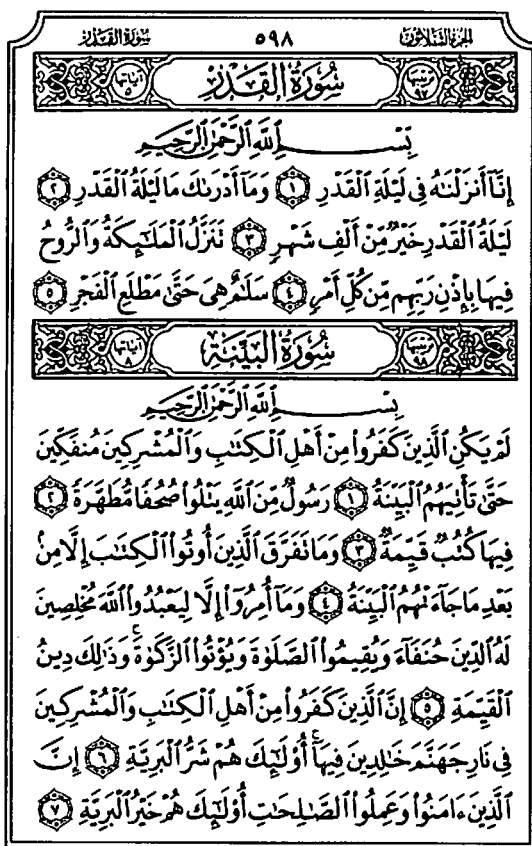 سُورَةُ القَدْرِ ٥٩٨ الجزء الثلاثون
ترتيبها ٩٧ سُورَةُ القَدْرِ آياتها ٥
بِسْمِ ٱللَّهِ ٱلرَّحْمَٰنِ ٱلرَّحِيمِ
إِنَّآ أَنزَلْنَٰهُ فِى لَيْلَةِ ٱلْقَدْرِ ١ وَمَآ أَدْرَىٰكَ مَا لَيْلَةُ ٱلْقَدْرِ ٢
لَيْلَةُ ٱلْقَدْرِ خَيْرٌ مِّنْ أَلْفِ شَهْرٍ ٣ تَنَزَّلُ ٱلْمَلَٰٓئِكَةُ وَٱلرُّوحُ
فِيهَا بِإِذْنِ رَبِّهِم مِّن كُلِّ أَمْرٍ ٤ سَلَٰمٌ هِىَ حَتَّىٰ مَطْلَعِ ٱلْفَجْرِ ٥
ترتيبها ٩٨ سُورَةُ البَيِّنَةِ آياتها ٨
بِسْمِ ٱللَّهِ ٱلرَّحْمَٰنِ ٱلرَّحِيمِ
لَمْ يَكُنِ ٱلَّذِينَ كَفَرُوا۟ مِنْ أَهْلِ ٱلْكِتَٰبِ وَٱلْمُشْرِكِينَ مُنفَكِّينَ
حَتَّىٰ تَأْتِيَهُمُ ٱلْبَيِّنَةُ ١ رَسُولٌ مِّنَ ٱللَّهِ يَتْلُوا۟ صُحُفًا مُّطَهَّرَةً ٢
فِيهَا كُتُبٌ قَيِّمَةٌ ٣ وَمَا تَفَرَّقَ ٱلَّذِينَ أُوتُوا۟ ٱلْكِتَٰبَ إِلَّا مِنۢ
بَعْدِ مَا جَآءَتْهُمُ ٱلْبَيِّنَةُ ٤ وَمَآ أُمِرُوٓا۟ إِلَّا لِيَعْبُدُوا۟ ٱللَّهَ مُخْلِصِينَ
لَهُ ٱلدِّينَ حُنَفَآءَ وَيُقِيمُوا۟ ٱلصَّلَوٰةَ وَيُؤْتُوا۟ ٱلزَّكَوٰةَ ۚ وَذَٰلِكَ دِينُ
ٱلْقَيِّمَةِ ٥ إِنَّ ٱلَّذِينَ كَفَرُوا۟ مِنْ أَهْلِ ٱلْكِتَٰبِ وَٱلْمُشْرِكِينَ
فِى نَارِ جَهَنَّمَ خَٰلِدِينَ فِيهَآ ۚ أُو۟لَٰٓئِكَ هُمْ شَرُّ ٱلْبَرِيَّةِ ٦ إِنَّ
ٱلَّذِينَ ءَامَنُوا۟ وَعَمِلُوا۟ ٱلصَّٰلِحَٰتِ أُو۟لَٰٓئِكَ هُمْ خَيْرُ ٱلْبَرِيَّةِ ٧